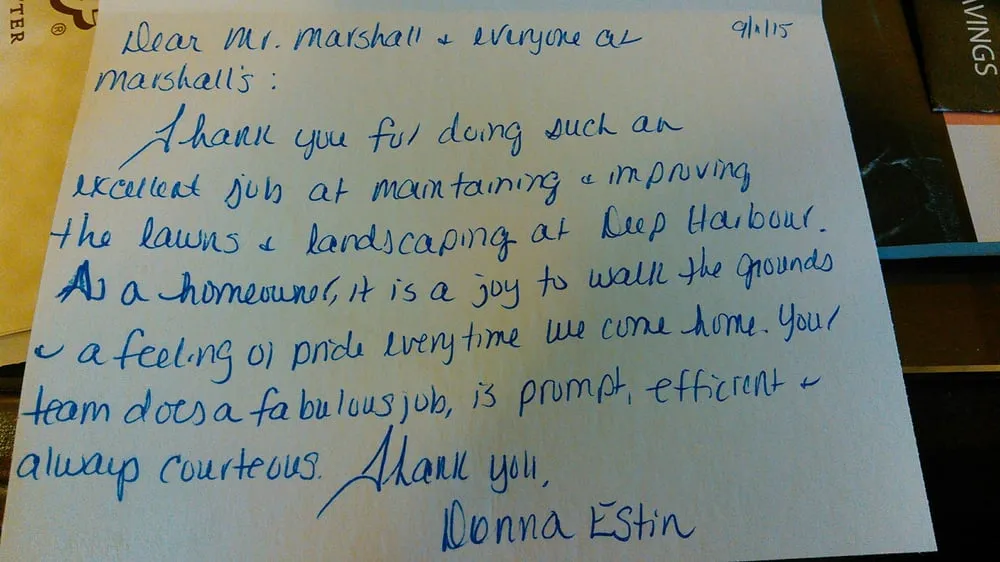 TTER
®
AVINGS
9/1/15
Dear Mr. Marshall & everyone at
Marshall's:
Thank you for doing such an
excellent job at maintaining & improving
the lawns & landscaping at Deep Harbour.
As a homeowner, it is a joy to walk the grounds
& a feeling of pride everytime we come home. Your
team does a fabulous job, is prompt, efficient &
always courteous. Thank you,
Donna Estin